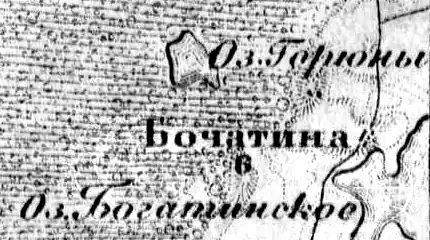 Оз. Горюны
Бочатина
6
Оз. Богатинское